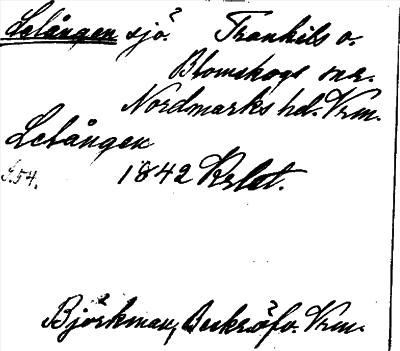 Lelången sjö. Trankils o.
Blomskogs snr.
Nordmarks hd. Vrm.
Lelången
S. 54. 1842 Krlet.
Björkman, Beskröfn. Vrm.